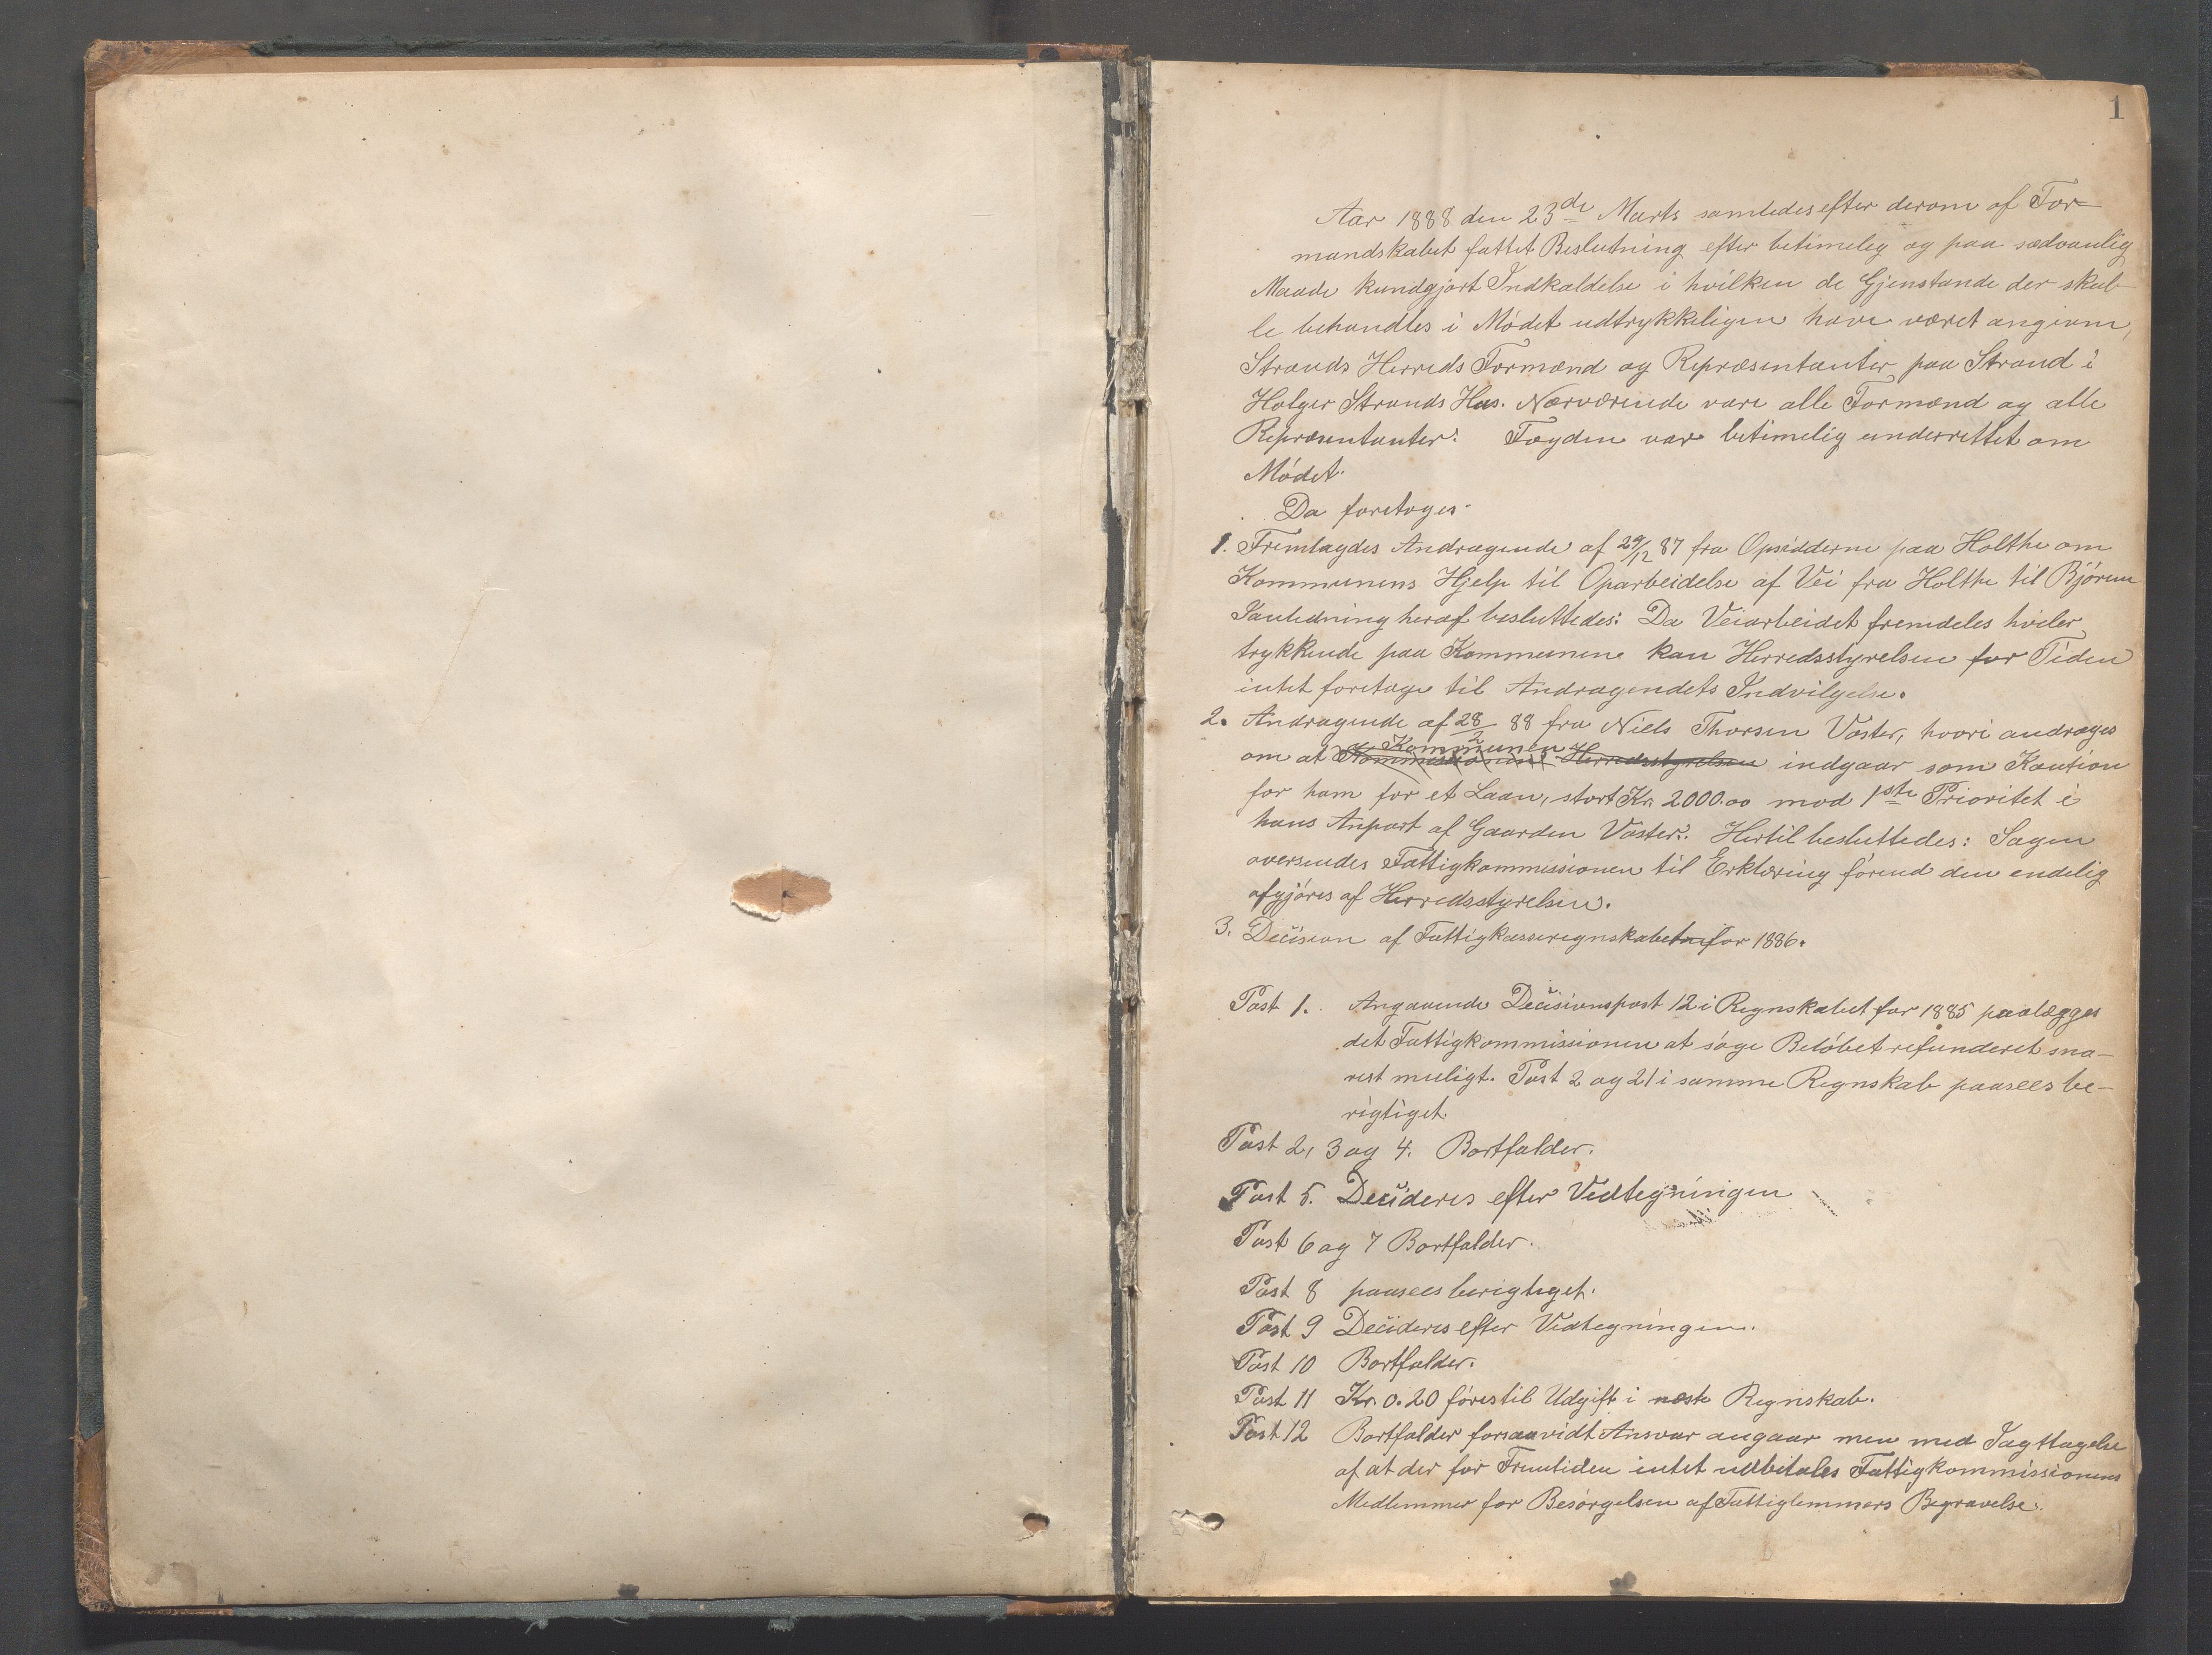 1
Aar 1888 den 23de Marts samledes efter derom af For
mandskabet fattet Beslutning efter betimelig og paa sædvanlig
Maade kundgjort Indkaldelse i hvilken de Gjenstande der skul-
le behandles i Mödet udtrykkeligen have været angivne,
Strands Herreds Formænd og Repræsentanter paa Strand i
Holger Strands Hus. Nærværende vare alle Formænd og alle
Repræsentanter. Fogden var betimelig underrettet om
Mödet.
Da foretoges.
1. Fremlagdes Andragende af 29/12 87 fra Opsidderne paa Holthe om
Kommunens Hjelp til Oparbeidelse af Vei fra Holthe til Björem
I anledning heraf besluttedes: Da Veiarbeidet fremdeles hviler
trykkende paa Kommunen kan Herredsstyrelsen for Tiden
intet foretage til Andragendets Indvilgelse.
2. Andragende af 28/2 88 fra Niels Thorsen Vaster, hvori andrages
Kommunen
om at Kommissionens Herredsstyrelsen indgaar som Kaution
for ham for et Laan, stort Kr. 2000.00 mod 1ste Prioritet i
hans Anpart af Gaarden Vaster. Hertil besluttedes: Sagen
oversendes Fattigkommissionen til Erklæring förend den endelig
afgjöres af Herredsstyrelsen.
3. Decision af Fattigkasseregnskabet for 1886.
Post 1. Angaaende Decisionspost 12 i Regnskabet for 1885 paalægges
det Fattigkommissionen at söge Belöbet refunderet sna-
rest muligt. Post 2 og 21 i samme Regnskab paasees be-
rigtiget.
Post 2, 3 og 4. Bortfalder.
Post 5. Decideres efter Vedtegningen
Post 6 og 7 Bortfalder.
Post 8 paasees berigtiget.
Post 9 Decideres efter Vedtegningen.
Post 10 Bortfalder.
Post 11 Kr. 0.20 föres til Udgift i næste Regnskab.
Post 12 Bortfalder forsaavidt Ansvar angaar men med Iagttagelse
af at der for Fremtiden intet udbetales Fattigkommissionens
Medlemmer for Besörgelsen af Fattiglemmers Begravelse.